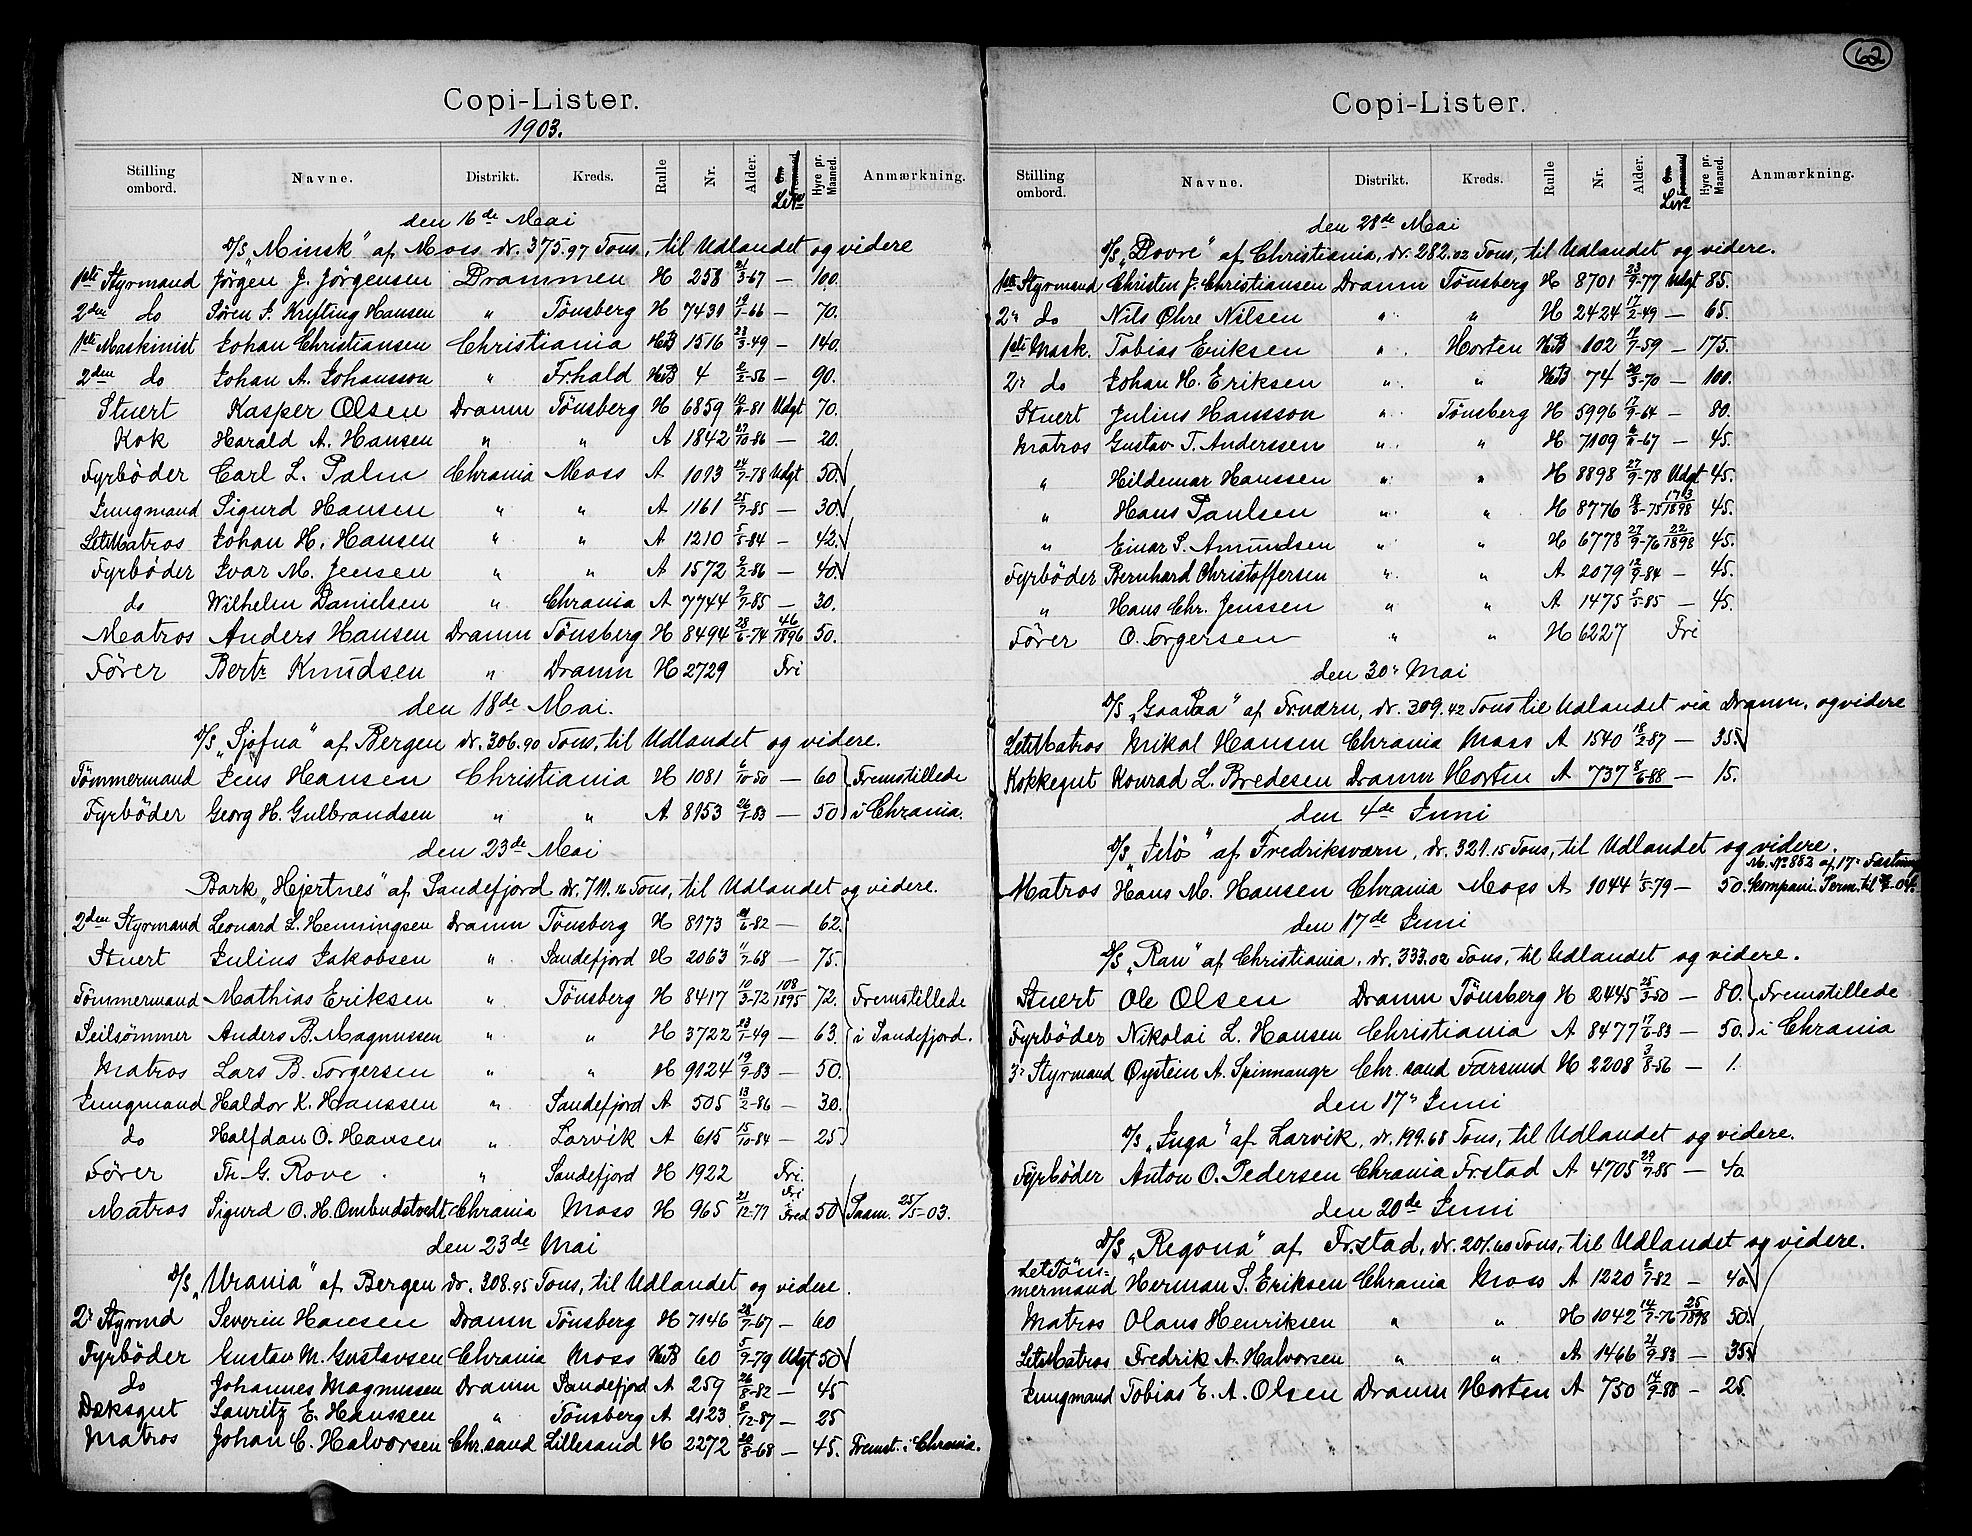 Copi-Lister.
1903.
Stilling ombord. Navne. Distrikt. Kreds. Rulle Nr. Alder. Hyre pr. Maaned. Anmærkning.
den 16de Mai
D/S „Minsk" af Moss dr. 375.97 Tons, til Udlandet og videre
1ste Styrmand Jörgen J. Jörgensen Drammen H 258 21/3-67 — 100.
2den do Sören S. Krefting Hansen " Tönsberg H 7431 19/7-66 — 70.
1ste Maskinist Johan Christiansen Christiania HB 1516 23/3-49 — 140.
2den do Johan A. Johansson " Fr.hald HB 4 2/2-56 — 90.
Stuert Kasper Olsen Dramn Tönsberg H 6859 19/6-81 Udgt 70.
Kok Harald A. Hansen " " A 1842 27/10-86 — 20.
Fyrböder Carl L. Palm Chrania Moss A 1093 24/7-78 Udgt 50.
Jungmand Sigurd Hansen " " A 1161 25/7-85 — 30.
LetMatros Johan H. Hansen " " A 1210 5/5-84 — 42.
Fyrböder Ivar M. Jensen " " A 1572 2/2-86 — 40.
do Wilhelm Danielsen " Chrania A 7744 9/7-85 — 30.
Matros Anders Hansen Dramn Tönsberg H 8494 28/6-74 46/1896 50.
Förer Bertr Knudsen " Dramn H 2729 Fri
den 18de Mai.
D/S „Sjofna" af Bergen dr. 306.90 Tons, til Udlandet og videre.
Tömmermand Jens Hansen Christiania H 1081 6/10-50 — 60 Fremstillede
Fyrböder Georg H. Gulbrandsen " " A 8153 26/7-83 — 50 i Chrania.
den 23de Mai
Bark „Hjertnes" af Sandefjord dr. 711.16 Tons, til Udlandet og videre.
2den Styrmand Leonard L. Henningsen Dramn Tönsberg H 8173 21/6-82 — 62.
Stuert Julius Jakobsen " Sandefjord H 2063 11/7-68 — 75.
Tömmermand Mathias Eriksen " Tönsberg H 8417 10/3-72 108/1895 72. Fremstillede
Seilsömmer Anders B. Magnussen " " H 3722 23/1-49 — 63. i Sandefjord.
Matros Lars B. Torgersen " " H 9124 19/9-83 — 50.
Jungmand Haldor K. Hanssen " Sandefjord A 505 13/2-86 — 30.
do Halfdan O. Hansen " Larvik A 615 15/10-84 — 25
Förer Th. G. Rove " Sandefjord H 1922 Fri.
Matros Sigurd O. H. Ombudstvedt Chrania Moss H 965 21/12-77 Fri Fred 50 Paam. 25/5-03.
den 23de Mai
D/S „Urania" af Bergen dr. 308.95 Tons, til Udlandet og videre.
2r Styrmd Severin Hansen Dramn Tönsberg H 7146 28/7-67 — 60
Fyrböder Gustav M. Gustavsen Chrania Moss HB 60 5/9-79 Udgt 50
do Johannes Magnussen Dramn Sandefjord A 259 26/8-82 — 45
Dæksgut Lauritz E. Hanssen " Tönsberg A 2123 8/12-87 — 25
Matros Johan C. Halvorsen Chr.sand Lillesand H 2272 20/8-68 — 45. Fremst. i Chrania.
62
Copi-Lister.
Stilling ombord. Navne. Distrikt. Kreds. Rulle Nr. Alder. Hyre pr. Maaned. Anmærkning.
den 28de Mai
D/S „Dovre" af Christiania, dr. 282.02 Tons, til Udlandet og videre.
1ste Styrmand Christen J. Christiansen Dramn Tönsberg H 8701 23/9-77 Udgt 85.
2r do Nils Öhre Nilsen " " H 2424 17/2-49 — 65.
1ste Mask. Tobias Eriksen " Horten HB 102 19/7-59 — 175.
2r do Johan H. Eriksen " " HB 74 20/3-70 — 100.
Stuert Julius Hansson " Tönsberg H 5996 17/9-64 — 80.
Matros Gustav T. Anderssen " " H 7109 6/6-67 — 45.
" Hildemar Hanssen " " H 8898 27/9-78 Udgt 45.
" Hans Paulsen " " H 8776 12/8-75 173/1898 45.
" Einar S. Amundsen " " H 6778 27/9-76 22/1898 45.
Fyrböder Bernhard Christoffersen " " A 2079 12/9-84 — 45.
" Hans Chr. Jenssen " " A 1475 5/5-85 — 45.
Förer O. Torgersen " " H 6227 Fri
den 30r Mai
D/S af Fr.værn, dr. 309.42 Tons til Udlandet via Dramn, og videre
LetMatros Mikal Hansen Chrania Moss A 1540 18/2-87 — 35.
Kokkegut Konrad L. Bredesen Dramn Horten A 737 8/6-88 — 15.
den 4de Juni
D/S „Jelö" af Fredriksværn, dr. 321.15 Tons, til Udlandet og videre.
M. No 882 af 17r Fæstnings
Matros Hans M. Hansen Chrania Moss A 1044 1/5-79 — 50. kompani. Perm. til -04.
den 17de Juni
D/S „Ran" af Christiania, dr. 333.02 Tons, til Udlandet og videre.
Stuert Ole Olsen Dramn Tönsberg H 2445 25/3-50 — 80. Fremstillede
Fyrböder Nikolai L. Hansen Christiania A 8477 17/6-83 — 50. i Chrania
3r Styrmand Öystein A. Spinnangr Chr. sand Farsund H 2208 3/8-56 — 1.
den 17r Juni
D/S „Inga" af Larvik, dr. 199.68 Tons, til Udlandet og videre.
Fyrböder Anton O. Pedersen Chrania Fr.stad A 4705 29/7-85 — 40.
den 20de Juni
D/S „Regona" af Fr.stad, dr. 201.60 Tons, til Udlandet og videre.
Lettömmermand Herman S. Eriksen Chrania Moss A 1220 8/7-82 — 40
Matros Olaus Henriksen " " H 1042 14/7-76 25/1898 50.
LetMatros Fredrik A. Halvorsen " " A 1466 21/9-83 — 35.
Jungmand Tobias E. A. Olsen Dramn Horten A 750 14/9-88 — 25.